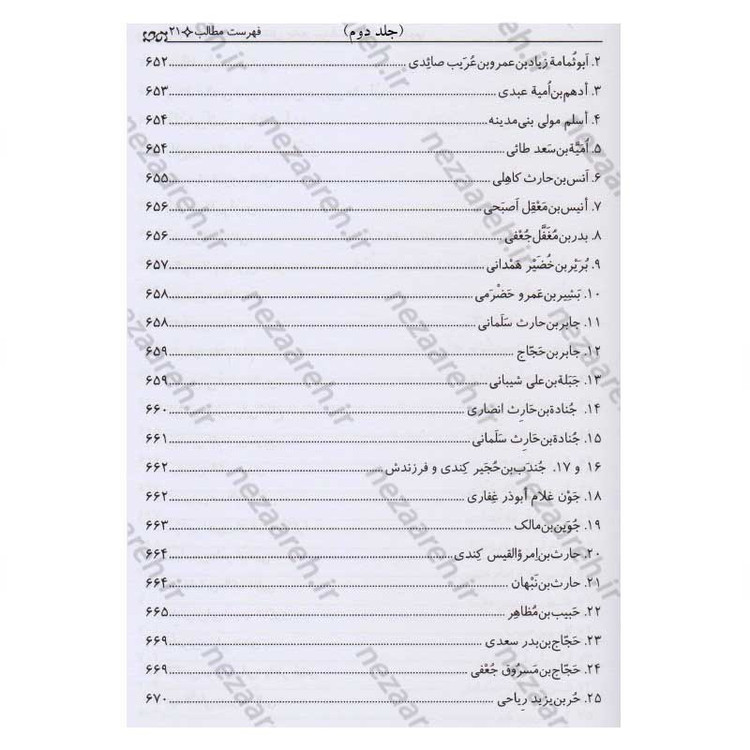 (جلد دوم) فهرست مطالب ۲۱
۲. أبوثُمامة زیادبن‌عمروبن‌عُرَیب صائِدی ۶۵۲
۳. أدهم‌بن‌اُمیة عبدی ۶۵۳
۴. أسلم مولی بنی‌مدینه ۶۵۴
۵. اُمَیَّة‌بن‌سَعد طائی ۶۵۴
۶. أنس‌بن‌حارث کاهِلی ۶۵۵
۷. أنیس‌بن‌مَعْقِل أصبَحی ۶۵۶
۸. بدربن‌مُغَفَّل‌جُعْفی ۶۵۶
۹. بُرَیْربن‌خُضَیْر هَمْدانی ۶۵۷
۱۰. بَشیربن‌عَمرو حَضْرَمی ۶۵۸
۱۱. جابربن‌حارث سَلْمانی ۶۵۸
۱۲. جابربن‌حَجّاج ۶۵۹
۱۳. جَبَلة‌بن‌علی شیبانی ۶۵۹
۱۴. جُنادة‌بن‌حارِث انصاری ۶۶۰
۱۵. جُنادة‌بن‌حارِث سَلْمانی ۶۶۱
۱۶ و ۱۷. جُندَب‌بن‌حُجَیر کِندی و فرزندش ۶۶۲
۱۸. جَوْن غلام أبوذر غِفاری ۶۶۲
۱۹. جُوَین‌بن‌مالک ۶۶۳
۲۰. حارث‌بن‌اِمرؤالقیس کِندی ۶۶۴
۲۱. حارث‌بن‌نَبْهان ۶۶۴
۲۲. حَبیب‌بن‌مُظاهِر ۶۶۵
۲۳. حَجّاج‌بن‌بدر سعدی ۶۶۹
۲۴. حَجّاج‌بن‌مَسرُوق جُعْفی ۶۶۹
۲۵. حُربن‌یزید رِیاحی ۶۷۰
nezaareh.ir
nezaareh.ir
nezaareh.ir
nezaareh.ir
nezaareh.ir
nezaareh.ir
nezaareh.ir
nezaareh.ir